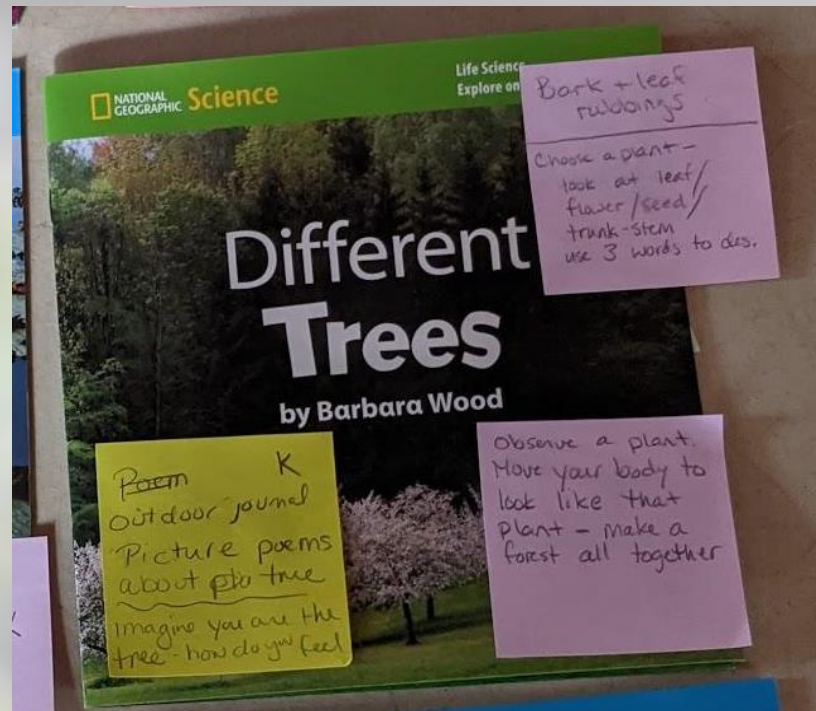 NATIONAL
GEOGRAPHIC Science
Life Science
Explore on
Different
Trees
by Barbara Wood
Bark + leaf
rubbings
Choose a plant -
look at leaf/
flower/seed/
trunk-stem
use 3 words to des.
Poem K
outdoor journal
Picture poems
about pla tree
Imagine you are the
tree - how do you feel
Observe a plant.
Move your body to
look like that
plant - make a
forest all together